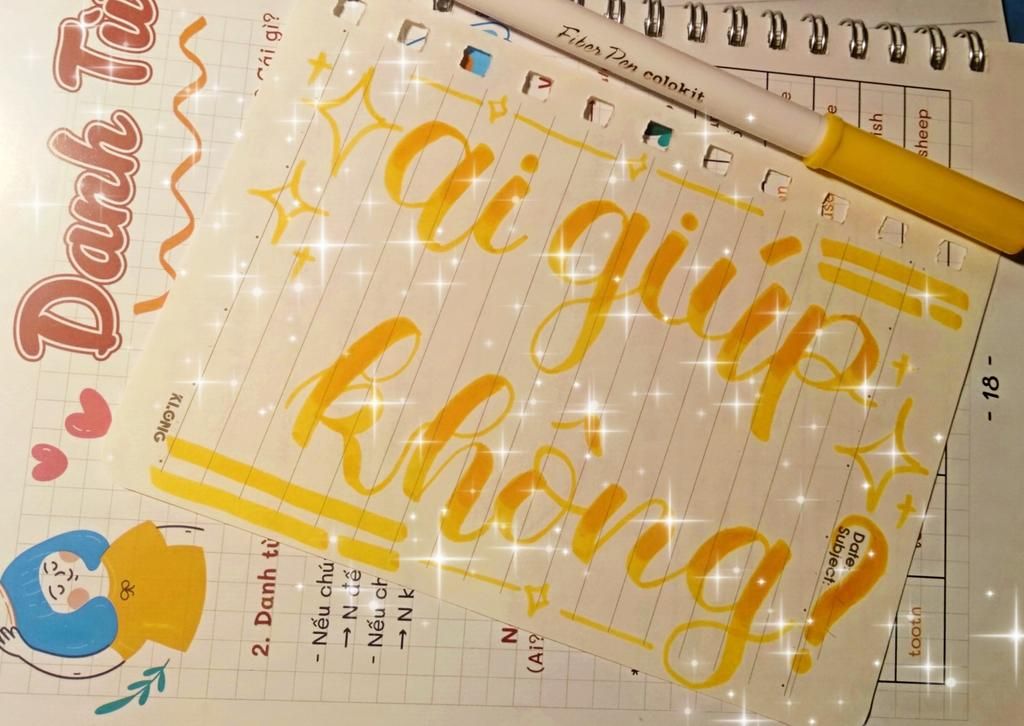 ai giúp
không?
Fiber Pen colokit
KLONG
Date:
Subject:
Danh Từ
2. Danh từ
- Nếu chú
→ N đế
- Nếu ch
→ N k
N
(Ai?
Cái gì?
ish
sheep
tooth
- 18 -